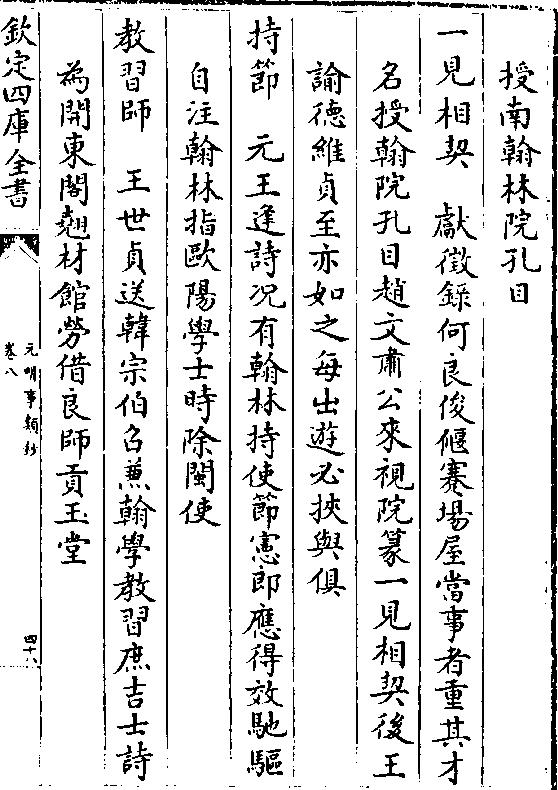 授南翰林院孔目
一見相契　獻徵錄何良俊偃蹇塲屋當事者重其才
名授翰院孔目趙文肅公來視院篆一見相契後王
諭德維貞至亦如之每出遊必挾與俱
持節　元王逢詩況有翰林持使節憲郎應得效馳驅
自注翰林指歐陽學士時除閩使
教習師　王世貞送韓宗伯召兼翰學教習庶吉士詩
為開東閣翹材館勞借良師貢玉堂
欽定四庫全書
元明事類鈔
卷八
四十八